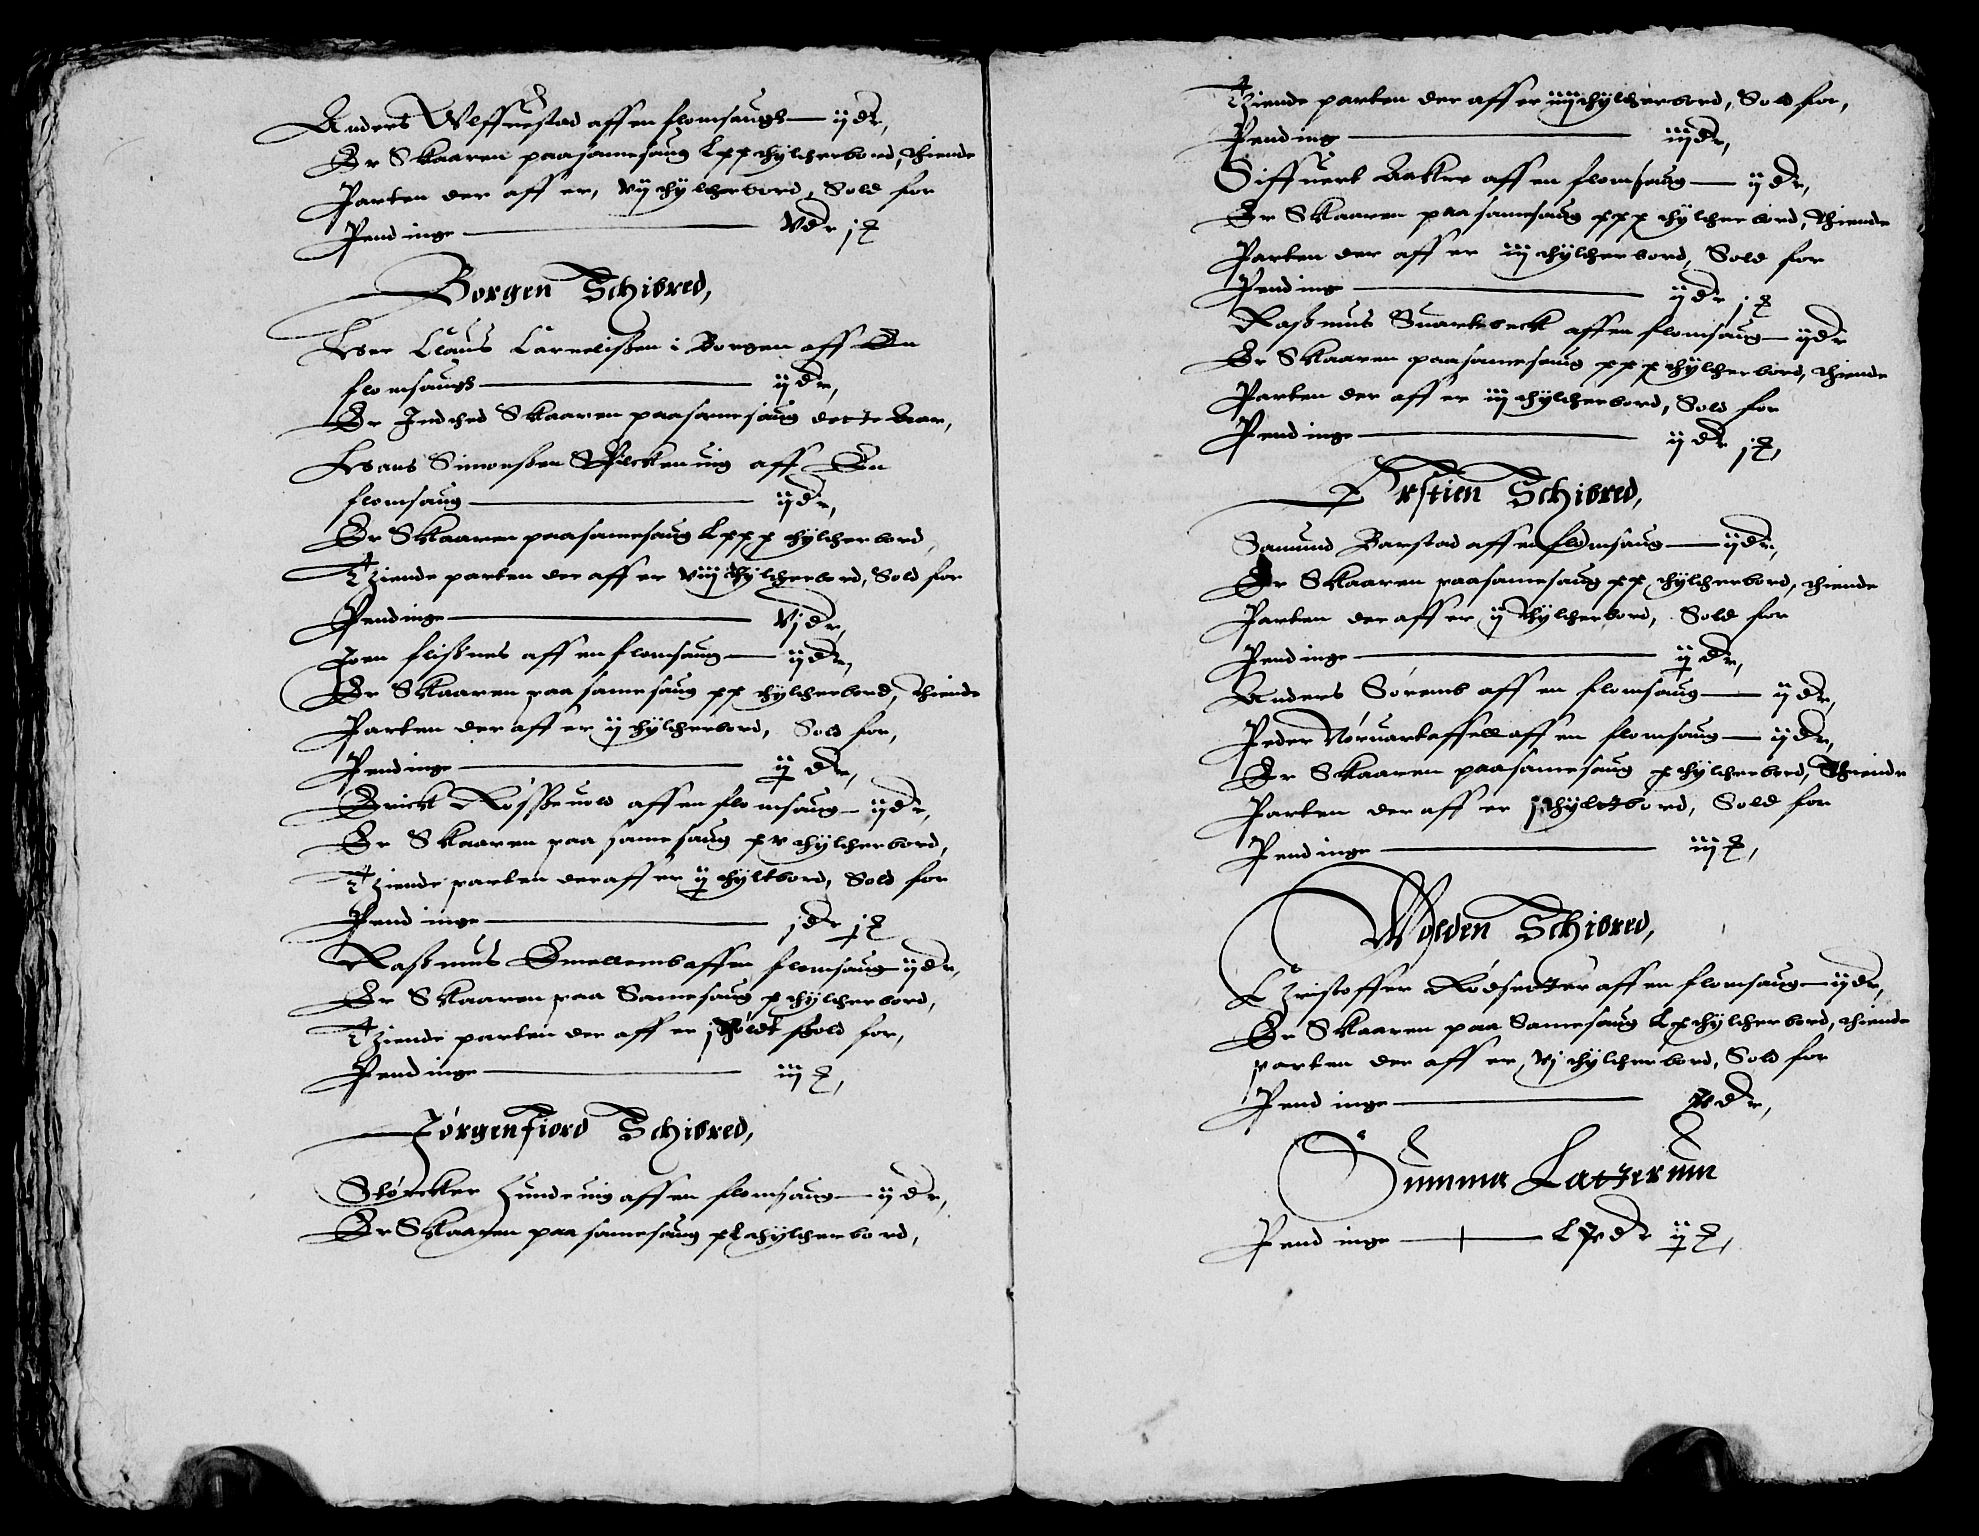 Anders Ulffuestad aff en flomsaugh — ij dr,
Er Skaaren paa samesaug Lxx thÿlcherbord, thiende
Parten der aff er, vij thÿlcherbord, Sold for
Pendinge — v dr j ꝗ
Borgen Schibred,
Her Claus Cornelißen i Borgen aff En
flomsaugh — ij dr,
Er Inthed Skaaren paa samesaug dette Aar,
Hans Simonßen aff En
flomsaug — ij dr,
Er Skaaren paa samesaug Lxxx thÿlcherbord,
Tziende parten der aff er viij thÿlcherbord, Sold for
Pendinge — vj dr,
Joen flißnes aff en flomsaug — ij dr,
Er Skaaren paa samesaug xx thÿlcherbord, Thiende
Parten der aff er ij thÿlcherbord, Sold for,
Pendinge — ij dr,
Erick aff en flomsaug — ij dr,
Er Skaaren paa samesaug xv thÿlcherbord,
Tziende parten der aff er ij thÿltbord, Sold for
Pendinge — j dr j ꝗ
Raßmus Emellemb aff en flomsaug ij dr,
Er Skaaren paa Samesaug x thÿlcherbord,
Tziende parten der aff er j sold for,
Pendinge — iij ꝗ,
Jørgenfiord Schibred,
Størcker Hundeuig aff en flomsaug — ij dr,
Er Skaaren paa samesaug xL thÿlcherbord,
Tziende parten der aff er iiij thÿlcherbord, Sold for,
Pending — iij dr,
Siffuert Aaker aff en flomsaug — ij dr,
Er Skaaren paa samesaug xxx thÿlcherbord, Thiende
Parten der aff er iij thÿlcherbord, Sold for
Pendinge — ij dr j ꝗ
Raßmus Suartebeck aff en flomsaug — ij dr
Er Skaaren paa samesaug xxx thÿlcherbord, thiende
Parten der aff er iij thÿlcherbord, Sold for
Pendinge — ij dr j ꝗ,
Ørstien Schibred,
Samund Barstad aff en flomsaug — ij dr,
Er Skaaren paa samesaug xx, thÿlcherbord, thiende
Parten der aff er ij thÿlcherbord, Sold for
Pendinge — ij dr,
Anders Søremb aff en flomsaug — ij dr,
Peder aff en flomsaug — ij dr,
Er Skaaren paa samesaug x thÿlcherbord, Thiende
Parten der aff er j thÿltbord, Sold for
Pendinge — iij ꝗ,
Wolden Schibred,
Christoffer Rødsetter aff en flomsaug — ij dr,
Er Skaaren paa Samesaug Lx thÿlcherbord, thiende
parten der aff er, vj thÿlcherbord, Sold for
Pendinge — dr,
Summa Latterum
Pendinge — dr ij ꝗ,